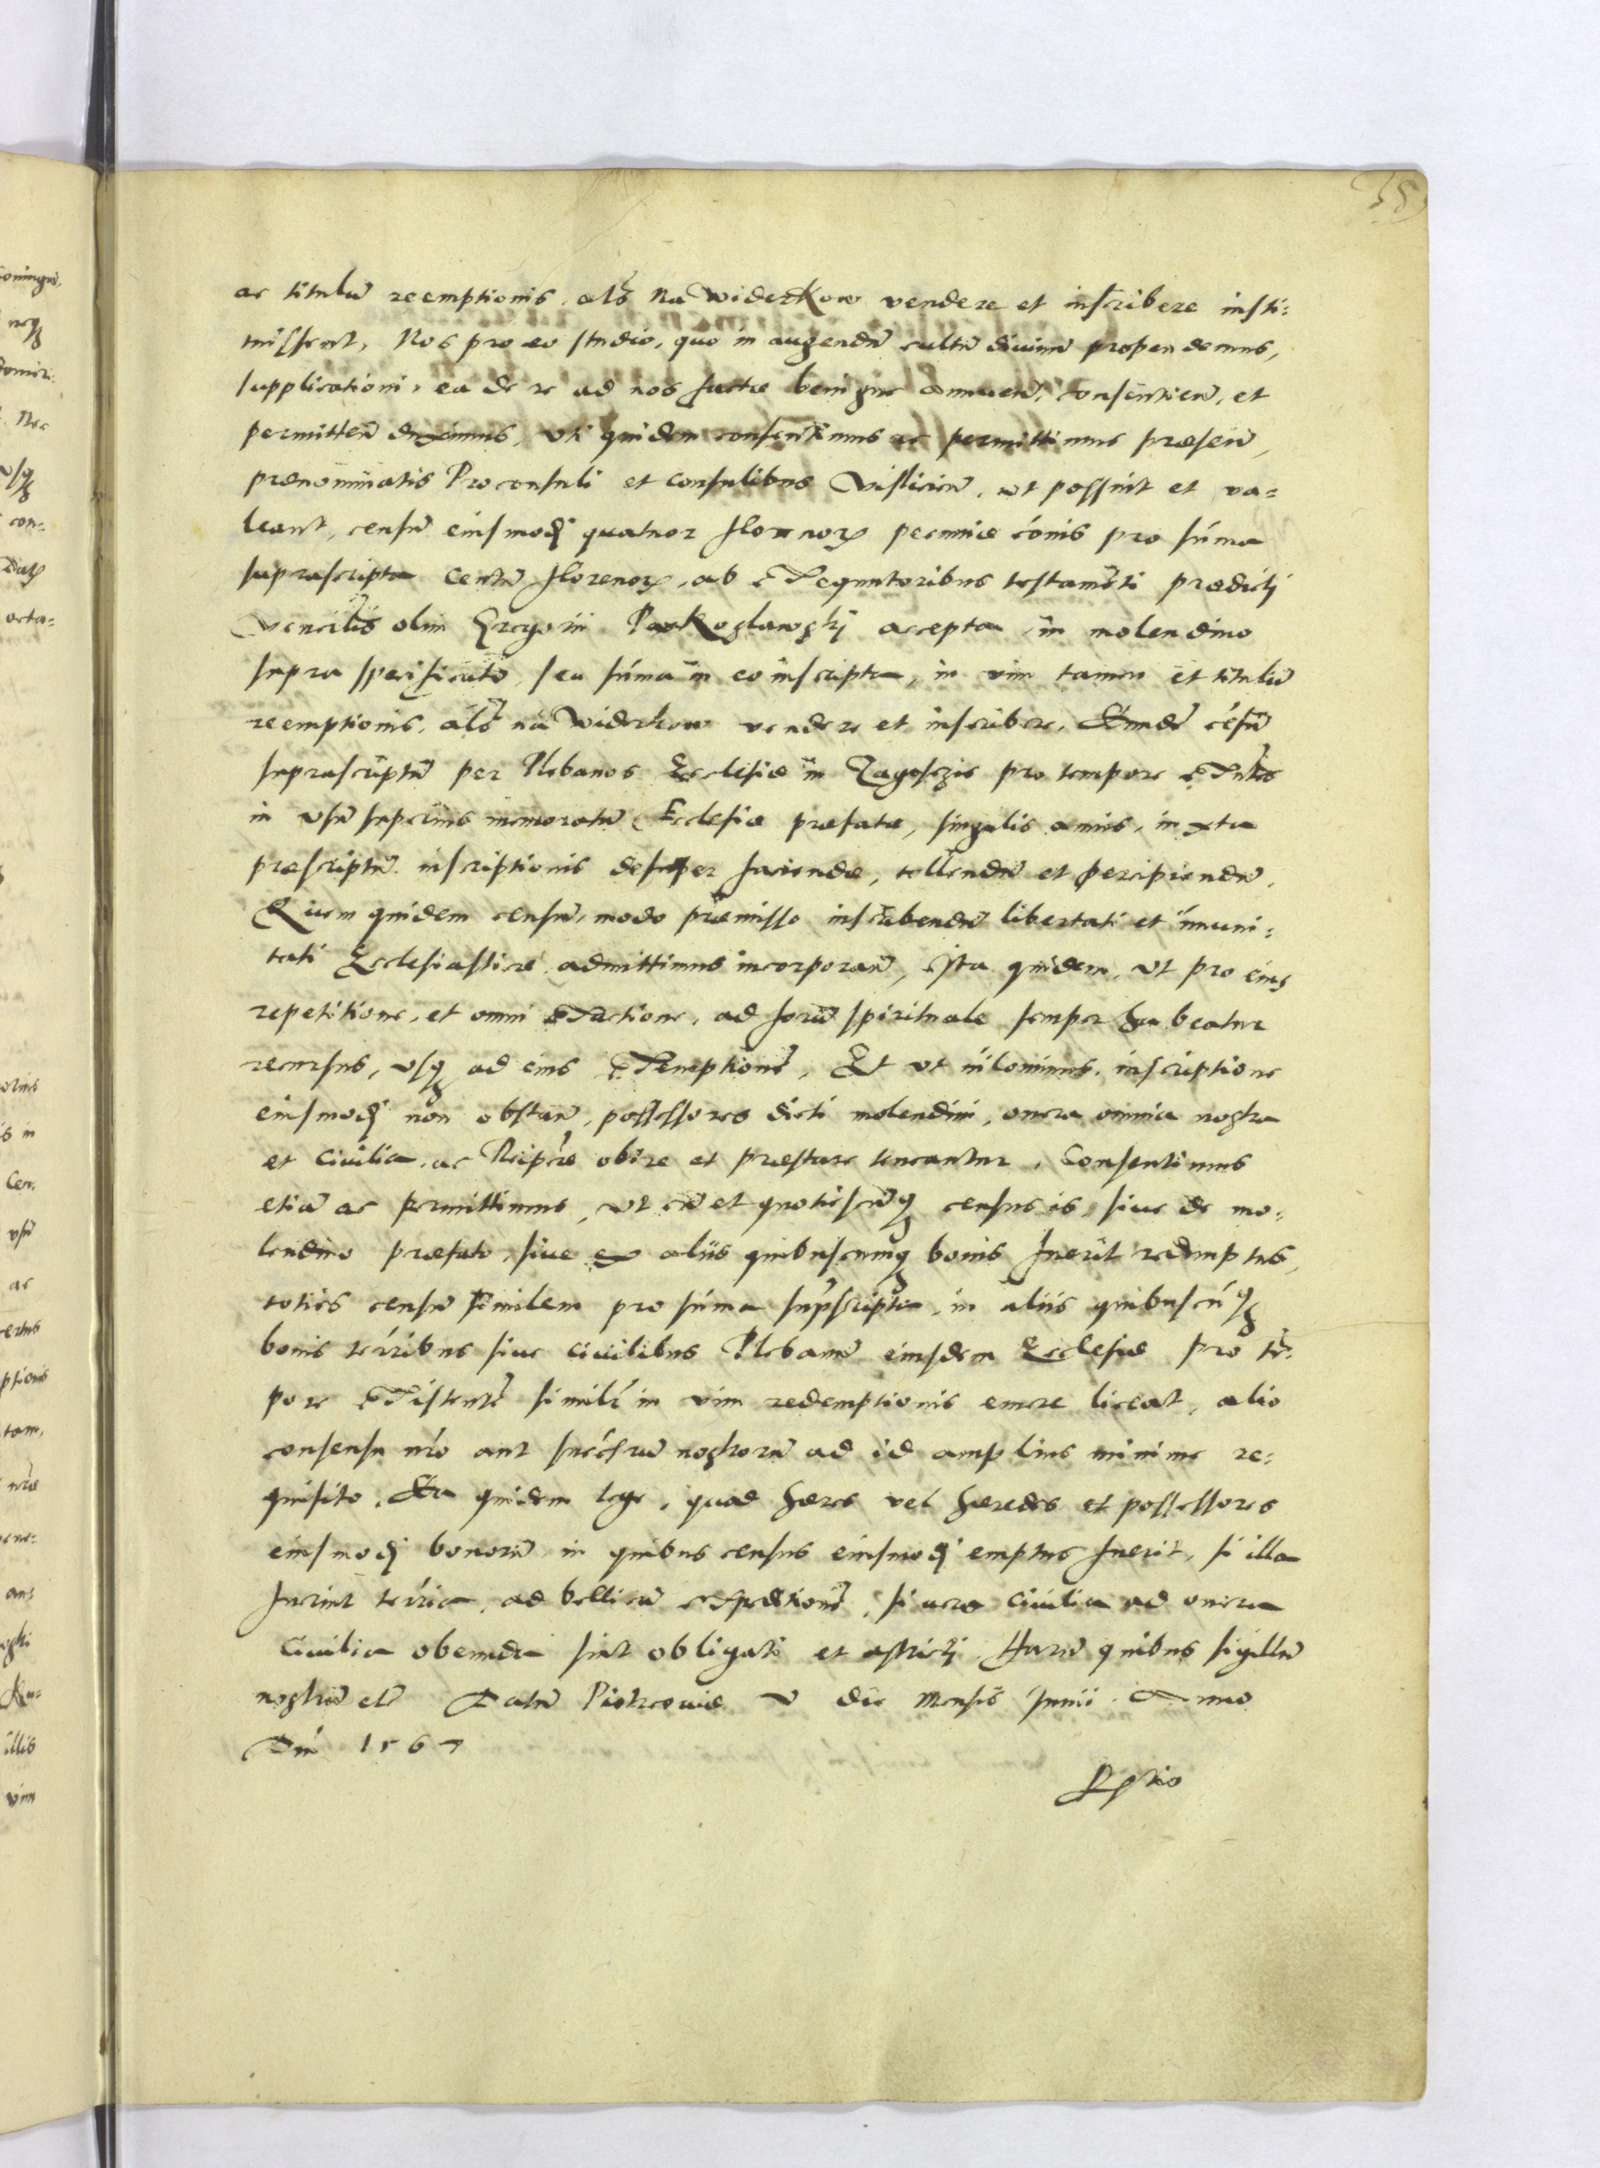 38
ac titulũ reemptionis als̃ Na Widerkow vendere et inscribere insti:
tuissent, Nos pro eo studio, quo in augendũ cultũ diuinũ propendemus,
supplicationi, ea de re ad nos factæ benigne annueñ, consentieñ, et
permitteñ duximus, vti quidem consentimus ac permittimus præseñ,
prænominatis Proconsuli et Consulibus Vislicieñ, ut possint et va=
leant, censũ eiusmodi quatuor florenoꝝ pecuniæ cõnis pro sũma
suprascripta Centũ florenoꝝ, ab Exequutoribus testamẽti prædicti
Veñcilis olim Gregorii Parkoszlawszki accepta, in molendino
supra specificato, seu sũma in eo inscripta, in vim tamen et titulũ
reemptionis, als̃ na Widerkow vendere et inscribere, Eundẽ cẽsũ
suprascriptũ per Plebanos Ecclesiæ in Zagoszcze pro tempore exñtes
in vsũ superius memoratũ Ecclesiæ præfatæ, singulis annis, iuxta
præscriptũ inscriptionis desuper faciendæ, tollendũ et percipiendũ,
Quem quidem censũ, modo præmisso inscribendũ libertati et im̃uni:
tati Ecclesiasticæ admittimus incorporañ, Ita quidem, vt pro eius
repetitione, et omni exactione, ad forũ spirituale semper habeatur
recursus, vsqꝫ ad eius exemptionẽ, Et vt nilominus, inscriptione
eiusmodi non obstañ, possessores dicti molendini, onera omnia nostra
et Ciuilia, ac Reipcæ obire et præstare teneantur, Consentimus
etiã ac permittimus, vt cũ et quotiescũqꝫ census is, siue de mo:
lendino præfato, siue ex aliis quibuscunqꝫ bonis fuerit redemptus,
toties censũ similem pro sũma suprascripta, in aliis quibuscũqꝫ
bonis terribus siue Ciuilibus Plebanũ eiusdem Ecclesiæ pro tẽ:
pore existentẽ simili in vim redemptionis emere liceat, alio
consensu nr̃o aut success̃ũ nostrorũ ad id amplius minime re:
quisito. Ea quidem lege, quod hæres vel hæredes et possessores
eiusmodi bonorũ in quibus census eiusmodi emptus fuerit, si illa
fuerint terr̃ia, ad bellicũ expeditionẽ, si vero Ciuilia ad onera
Ciuilia obeunda sint obligati et astricti. Harũ quibus sigillũ
nostrũ etc̃ Datũ Piotrcouiæ V die Mensis Junii Anno
Dñi 1567